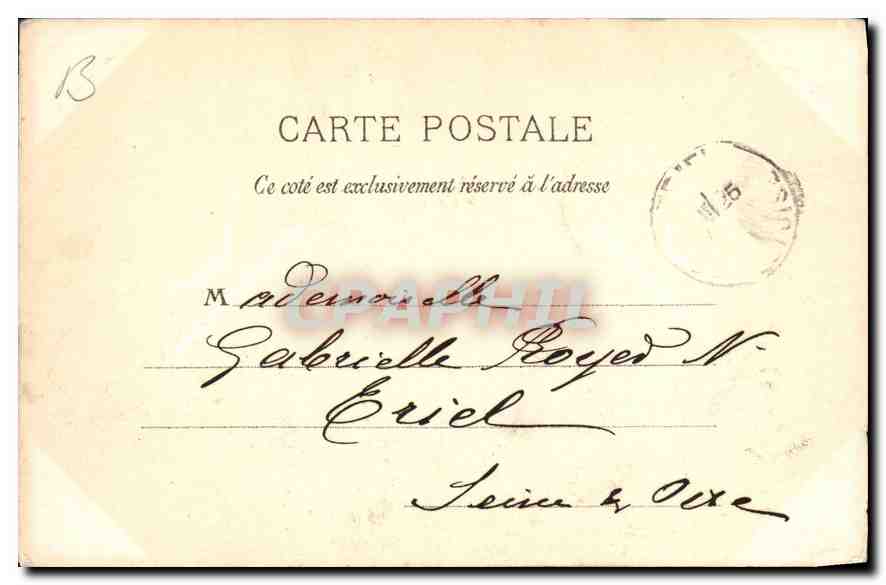 B
CARTE POSTALE
Ce coté est exclusivement réservé à l'adresse
25
Mademoiselle
CPAPHIL
Gabrielle Royer N.
Eriel
Seine & Oise